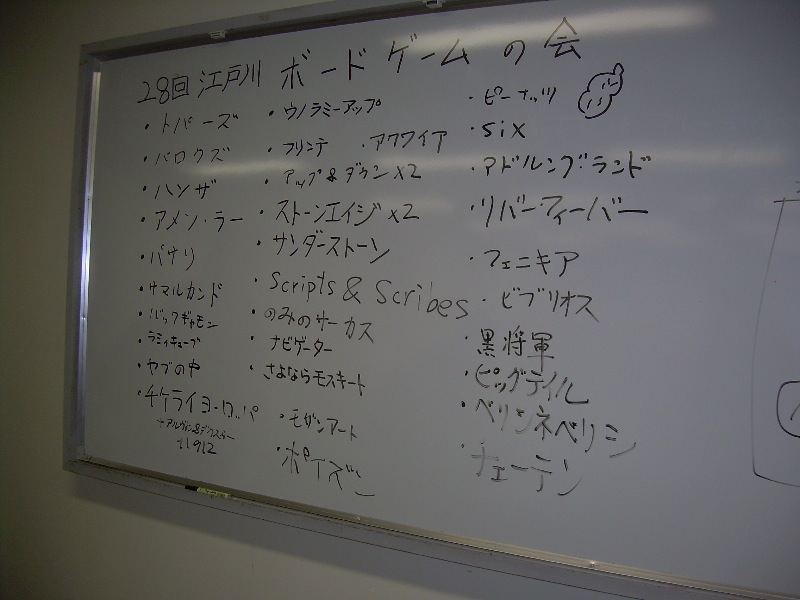 28回 江戸川 ボードゲームの会
・トパーズ
・バロクズ
・ハンザ
・アメン・ラー
・バサリ
・サマルカンド
・バックギャモン
・ラミィキューブ
・ヤブの中
・チケライヨーロッパ
+アルヴィン&デクスター
+1912
・ウノラミーアップ
・フリンテ ・アクワイア
・アップ&ダウン x2
・ストーンエイジ x2
・サンダーストーン
・Scripts & Scribes
・のみのサーカス
・ナビゲーター
・さよならモスキート
・モザンアート
・ポイズン
・ピーナッツ
・six
・アドルングランド
・リバーフィーバー
・フェニキア
・ビブリオス
・黒将軍
・ピッグテイル
・ペリシネペリシ
・チェーテン